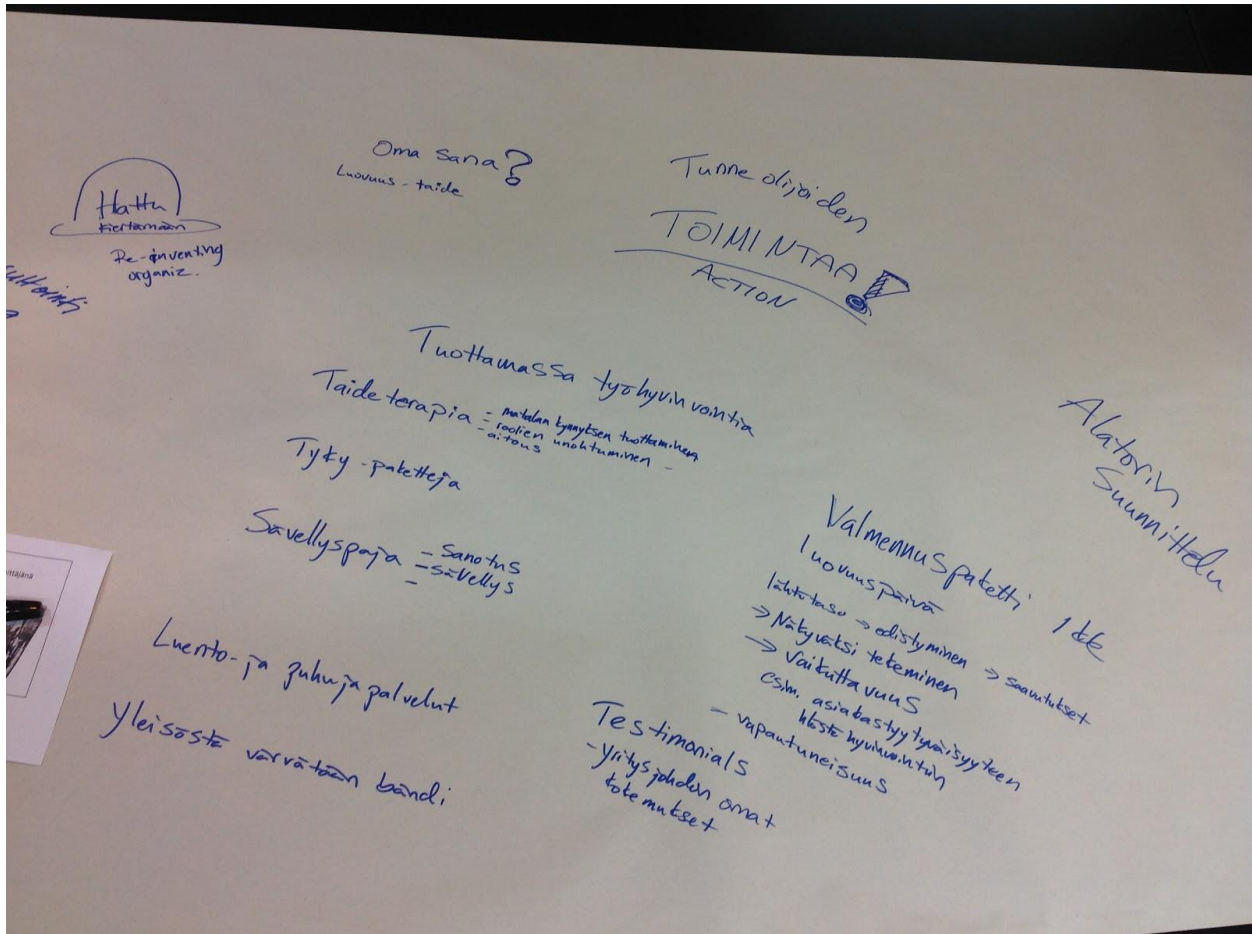 Hattu
kiertämään
Re-inventing
organiz.
Oma sana?
Luovuus - taide
Tunne olijoiden
TOIMINTAA!
ACTION
Tuottamassa työhyvinvointia
Taideterapia - matalan kynnyksen tuottaminen
- roolien unohtuminen -
- aitous
Tyky-paketteja
Sävellyspaja - Sanotus
- sävellys
-
Luento- ja puhujapalvelut
Yleisöstä värvätään bändi
Alatorin
Suunnittelu
Valmennuspaketti 1 kk
Luovuuspäivä
lähtötaso → edistyminen → saavutukset
→ Näkyväksi tekeminen
→ Vaikuttavuus
esim. asiakastyytyväisyyteen
hlöstö hyvinvointiin
- vapautuneisuus
Testimonials
- yritysjohdon omat
kokemukset